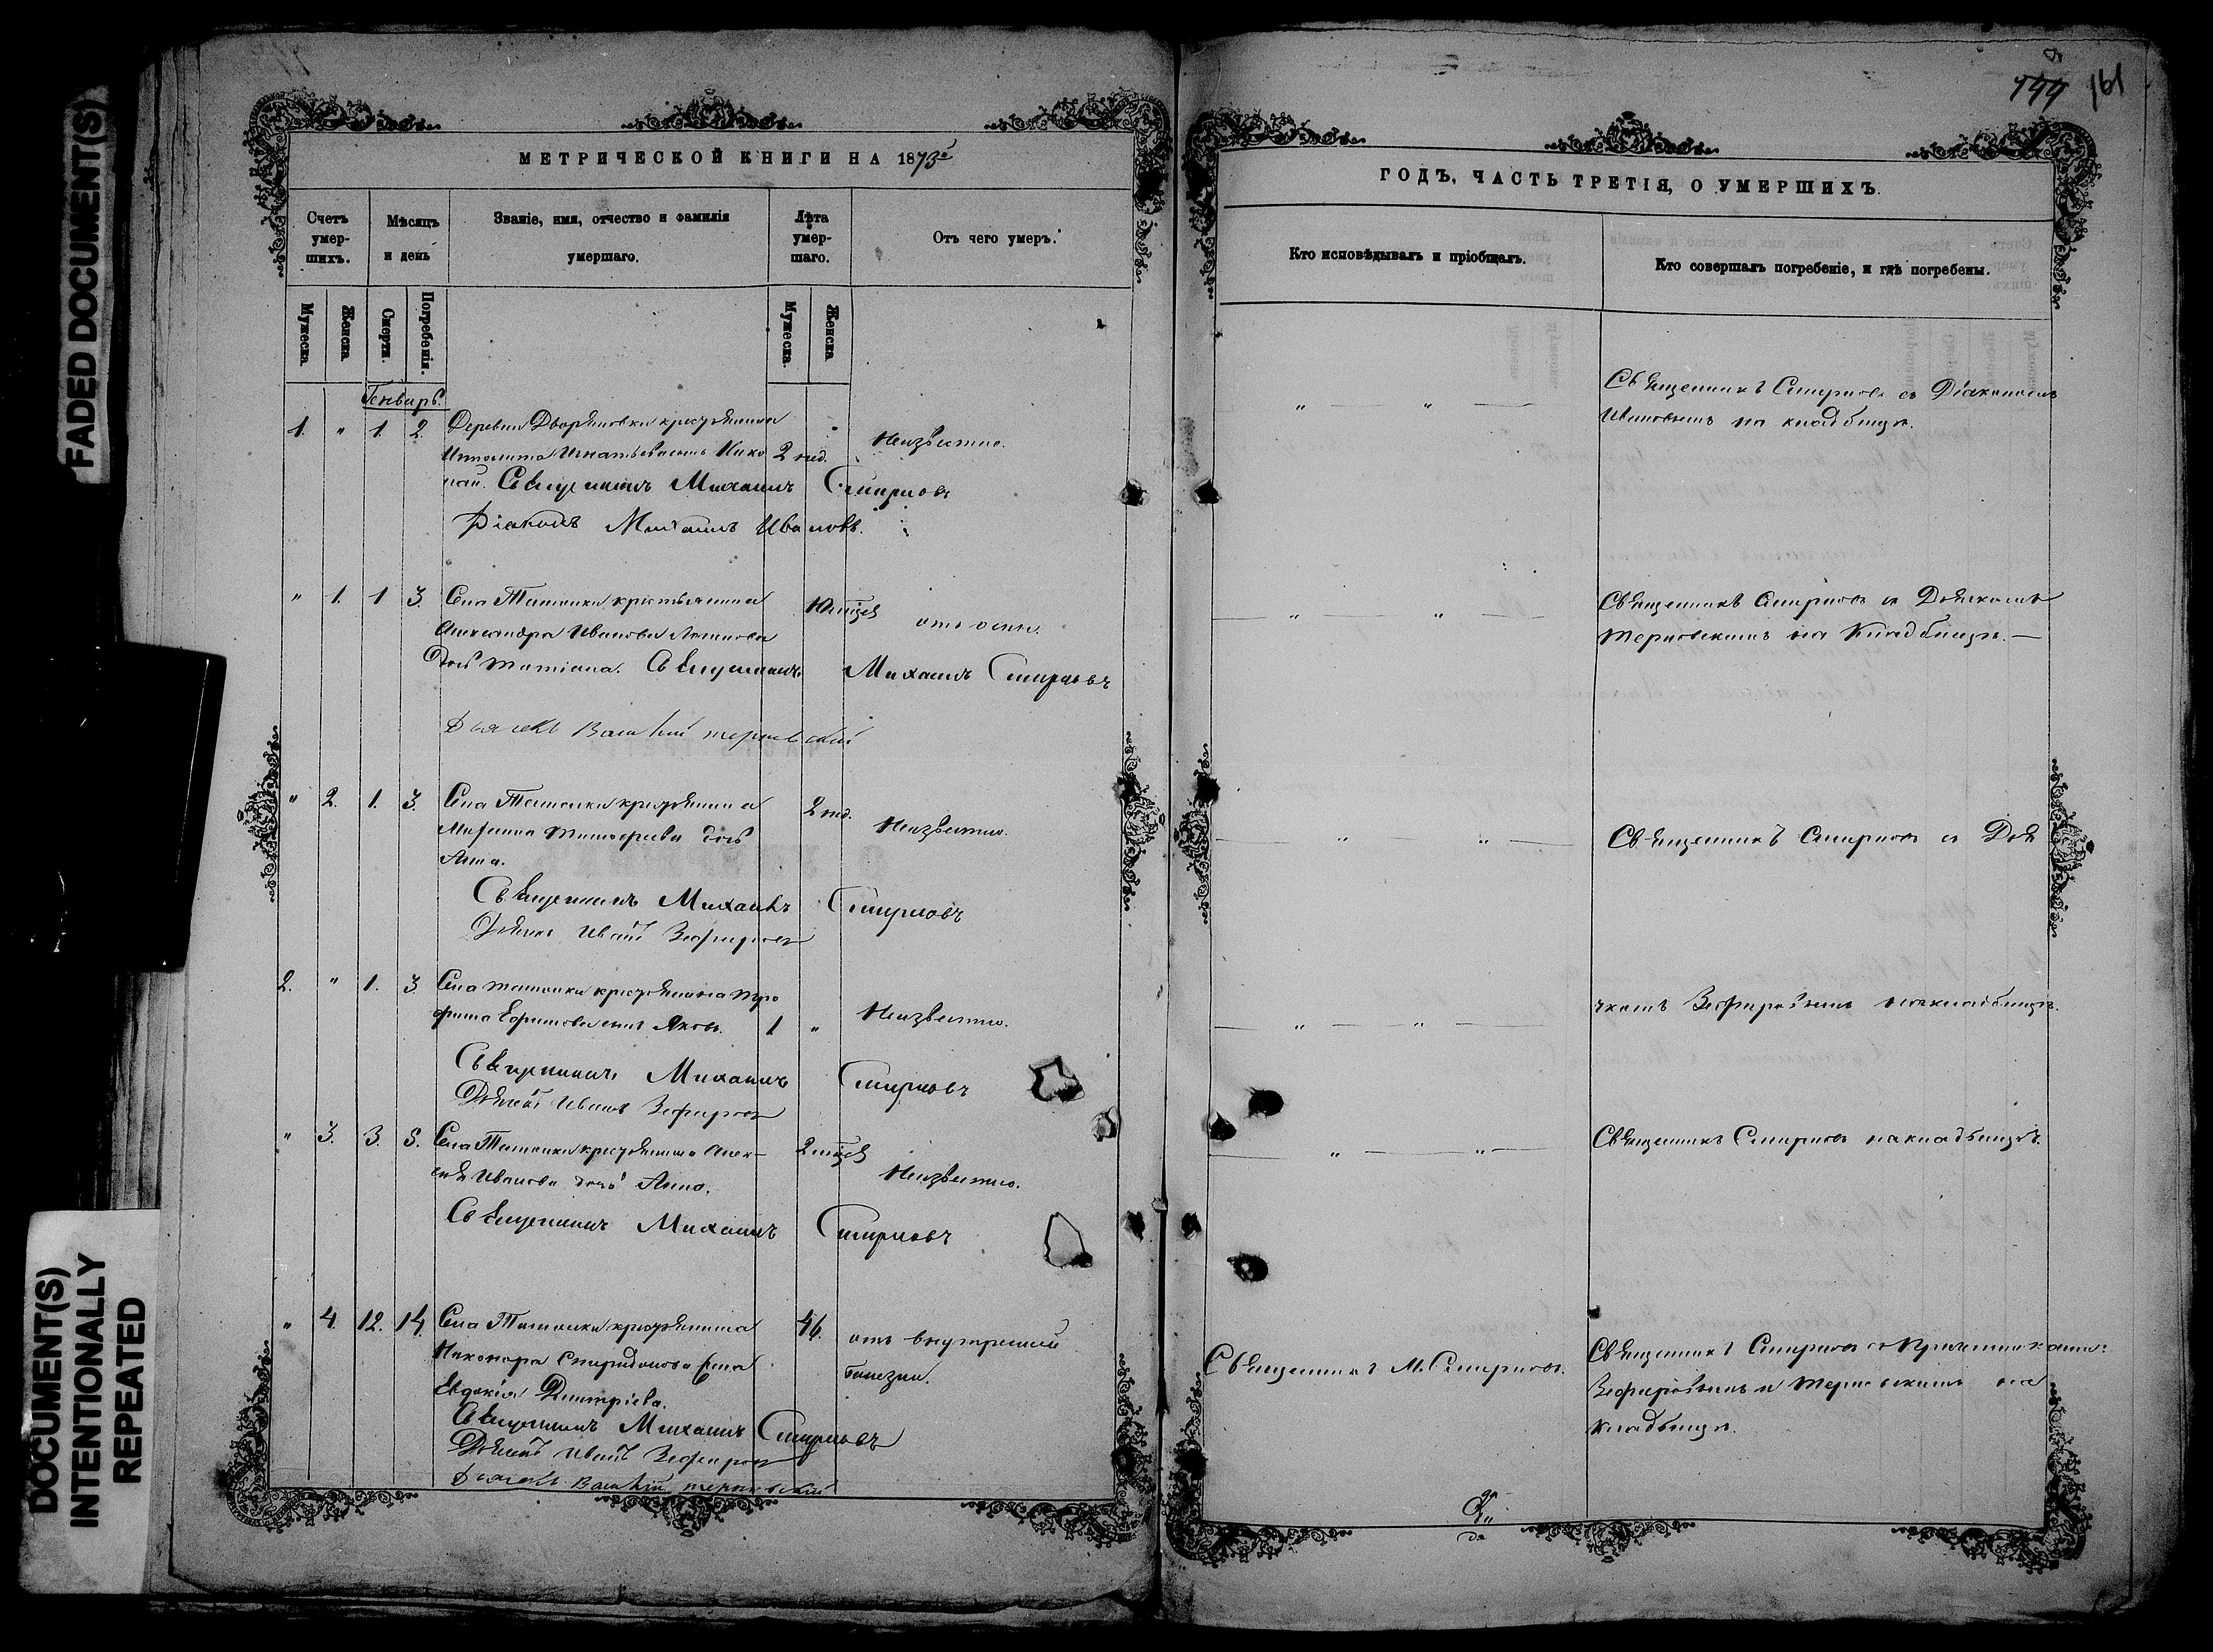 FADED DOCUMENT(S)
DOCUMENT(S)
INTENTIONALLY
REPEATED
МЕТРИЧЕСКОЙ КНИГИ НА 1873й
Счетъ
умер-
шихъ.
Мѣсяцъ
и день
Званіе, имя, отчество и фамилія
умершаго.
Лѣта
умер-
шаго.
Отъ чего умеръ.
Мужеска.
Женска.
Смерти.
Погребенія.
Мужеска.
Женска.
Генварь.
1. " 1. 2. Деревни Дворяновки крестьянина
Игнатьева сынъ Нико 2 нед. Неизвѣстно.
лай. Священникъ Михаилъ Смирновъ
Діаконъ Михаилъ Ивановъ.
" 1. 1 3. Села крестьянина
Александра Иванова отъ оспы.
дочь Татіана. Священникъ Михаилъ Смирновъ
Дьячекъ Василій Терновскій
" 2. 1. 3. Села крестьянина 2 нед. Неизвѣстно.
Тимофеева дочь
Анна.
Священникъ Михаилъ Смирновъ
Дьячекъ Иванъ Зефировъ
2. " 1. 3. Села крестьянина Тро
фима Ефимова сынъ Яковъ. 1 " Неизвѣстно.
Священникъ Михаилъ Смирновъ
Дьячекъ Иванъ Зефировъ
" 3. 3. 5. Села крестьянина Алек-
сѣя Иванова дочь Анна. Неизвѣстно.
Священникъ Михаилъ Смирновъ
" 4. 12. 14. Села крестьянина 46. отъ внутренней
Никонора Спиридонова жена болезни.
Евдокія Димитріева.
Священникъ Михаилъ Смирновъ
Дьячекъ Иванъ Зефировъ
Дьячекъ Василій Терновскій
161
ГОДЪ, ЧАСТЬ ТРЕТІЯ, О УМЕРШИХЪ.
Кто исповѣдывалъ и пріобщалъ.
Кто совершалъ погребеніе, и гдѣ погребены.
Священникъ Смирновъ съ Діакономъ
Ивановымъ на кладбищѣ.
Священникъ Смирновъ съ Дьячкомъ
Терновскимъ на Кладбищѣ.
Священникъ Смирновъ съ Дья
чкомъ Зефировымъ на кладбищѣ.
Священникъ Смирновъ на кладбищѣ.
Священникъ М. Смирновъ.
Священникъ Смирновъ съ Причетниками:
Зефировымъ и Терновскимъ на
кладбищѣ.